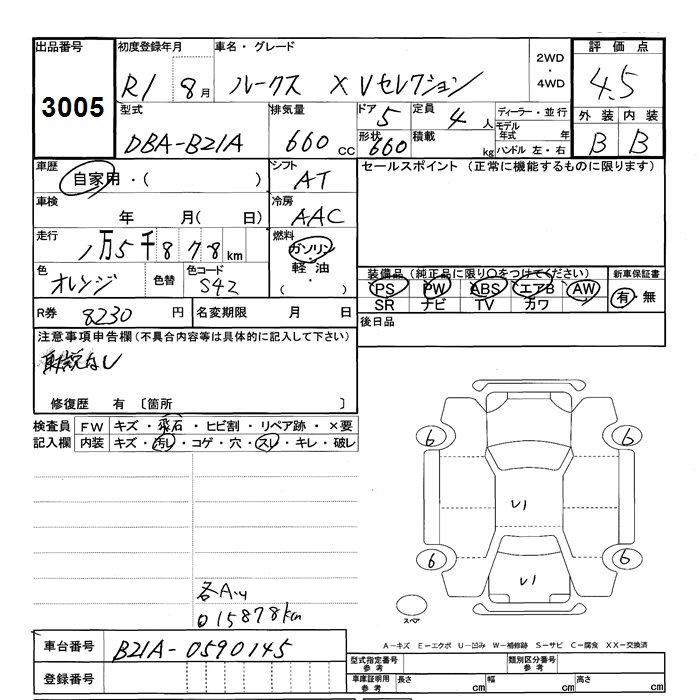 出品番号 初度登録年月 車名・グレード 2WD ・ 4WD 評価点
3005 R1 8月 ルークス X Vセレクション 4.5
型式 排気量 ドア 5 定員 4人 ディーラー・並行 外装 内装
DBA-B21A 660 cc 形状 660 積載 kg モデル年式 年 B B
ハンドル 左・右
車歴 自家用・( ) シフト AT セールスポイント (正常に機能するものに限ります)
車検 年 月( 日) 冷房 AAC
走行 1万5千878km 燃料 ガソリン・軽油 ( ・ )
色 オレンジ 色替 色コード S42 装備品(純正品に限り○をつけてください) 新車保証書
PS PW ABS エアB AW 有・無
SR ナビ TV カワ
R券 8230 円 名変期限 月 日 後日品
注意事項申告欄(不具合内容等は具体的に記入して下さい)
取説なし
修復歴 有 〔箇所 〕
検査員記入欄 FW キズ・飛石・ヒビ割・リペア跡・×要
内装 キズ・汚レ・コゲ・穴・スレ・キレ・破レ
6 6
U1
6 6
U1
各A
015878km
スペア
A-キズ E-エクボ U-凹み W-補修跡 S-サビ C-腐食 XX-交換済
車台番号 B21A-0590145 型式指定番号 参考 類別区分番号 参考
登録番号 車庫証明用 参考 長さ cm 幅 cm 高さ cm